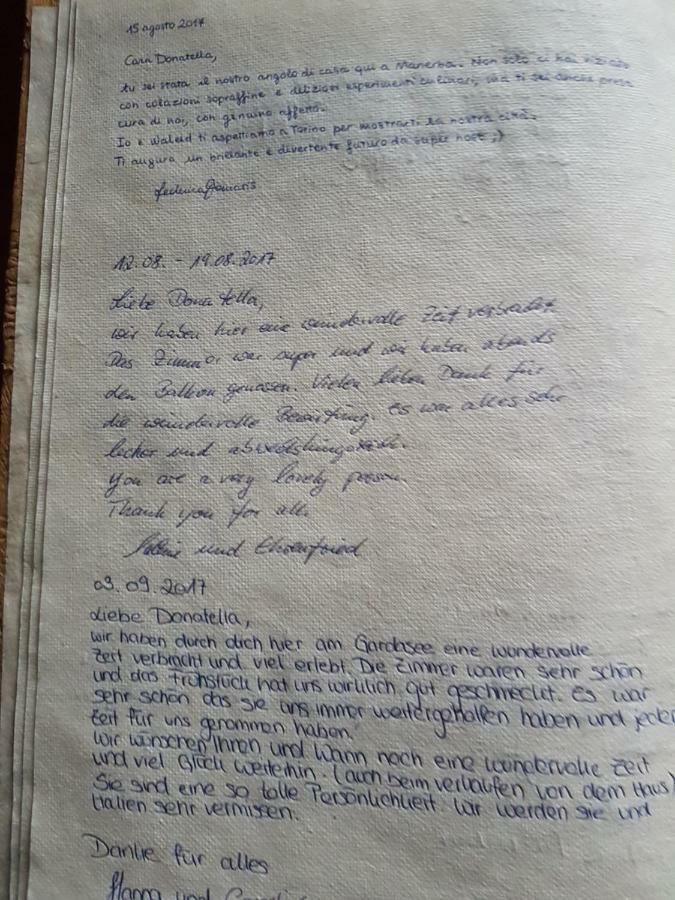 15 agosto 2017
Cara Donatella,
tu sei stata il nostro angolo di casa qui a Manerba. Non solo ci hai viziato
con colazioni sopraffine e deliziosi esperimenti culinari, ma ti sei anche presa
cura di noi, con genuino affetto.
Io e Waleid ti aspettiamo a Torino per mostrarti la nostra città.
Ti augura un brillante e divertente futuro da super host ;)
Federica
12.08. - 19.08.2017
Liebe Donatella,
wir haben hier eine wundervolle Zeit verbracht.
Das Zimmer war super und wir haben abends
den Balkon genossen. Vielen lieben Dank für
die wundervolle Bewirtung. Es war alles sehr
lecker und abwechslungsreich.
you are a very lovely person.
Thank you for all.
und Ehrenfried
03.09.2017
Liebe Donatella,
wir haben durch dich hier am Gardasee eine wundervolle
Zeit verbracht und viel erlebt. Die Zimmer waren sehr schön
und das Frühstück hat uns wirklich gut geschmeckt. Es war
sehr schön das sie uns immer weitergeholfen haben und jeder
Zeit für uns genommen haben.
Wir wünschen Ihnen und Wann noch eine wundervolle Zeit
und viel Glück weiterhin. (auch beim verkaufen von dem Haus)
Sie sind eine so tolle Persönlichkeit. Wir werden sie und
Italien sehr vermissen.
Danke für alles
Hanna und